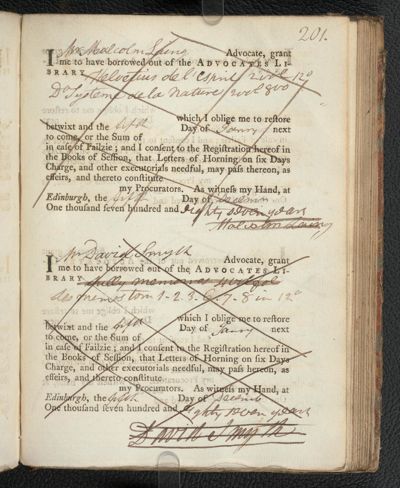 201.
I Mr Malcolm Laing Advocate, grant
me to have borrowed out of the ADVOCATES LI-
BRARY Helvetius de l'Esprit 2 vol. 12o
Do Systeme de la Nature 2 vol 8vo
which I oblige me to restore
betwixt and the fifth Day of Janry next
to come, or the Sum of
in case of Failzie; and I consent to the Registration hereof in
the Books of Session, that Letters of Horning on six Days
Charge, and other executorials needful, may pass thereon, as
effeirs, and thereto constitute
my Procurators. As witness my Hand, at
Edinburgh, the fifth Day of Decemr
One thousand seven hundred and Eighty seven years
Malcolm Laing
I Mr David Smyth Advocate, grant
me to have borrowed out of the ADVOCATES LI-
BRARY
des memes tom 1-2-3- 7-8 in 12o
which I oblige me to restore
betwixt and the fifth Day of Janry next
to come, or the Sum of
in case of Failzie; and I consent to the Registration hereof in
the Books of Session, that Letters of Horning on six Days
Charge, and other executorials needful, may pass hereon, as
effeirs, and thereto constitute
my Procurators. As witness my Hand, at
Edinburgh, the fifth Day of Decemr
One thousand seven hundred and eighty seven years
David Smythe